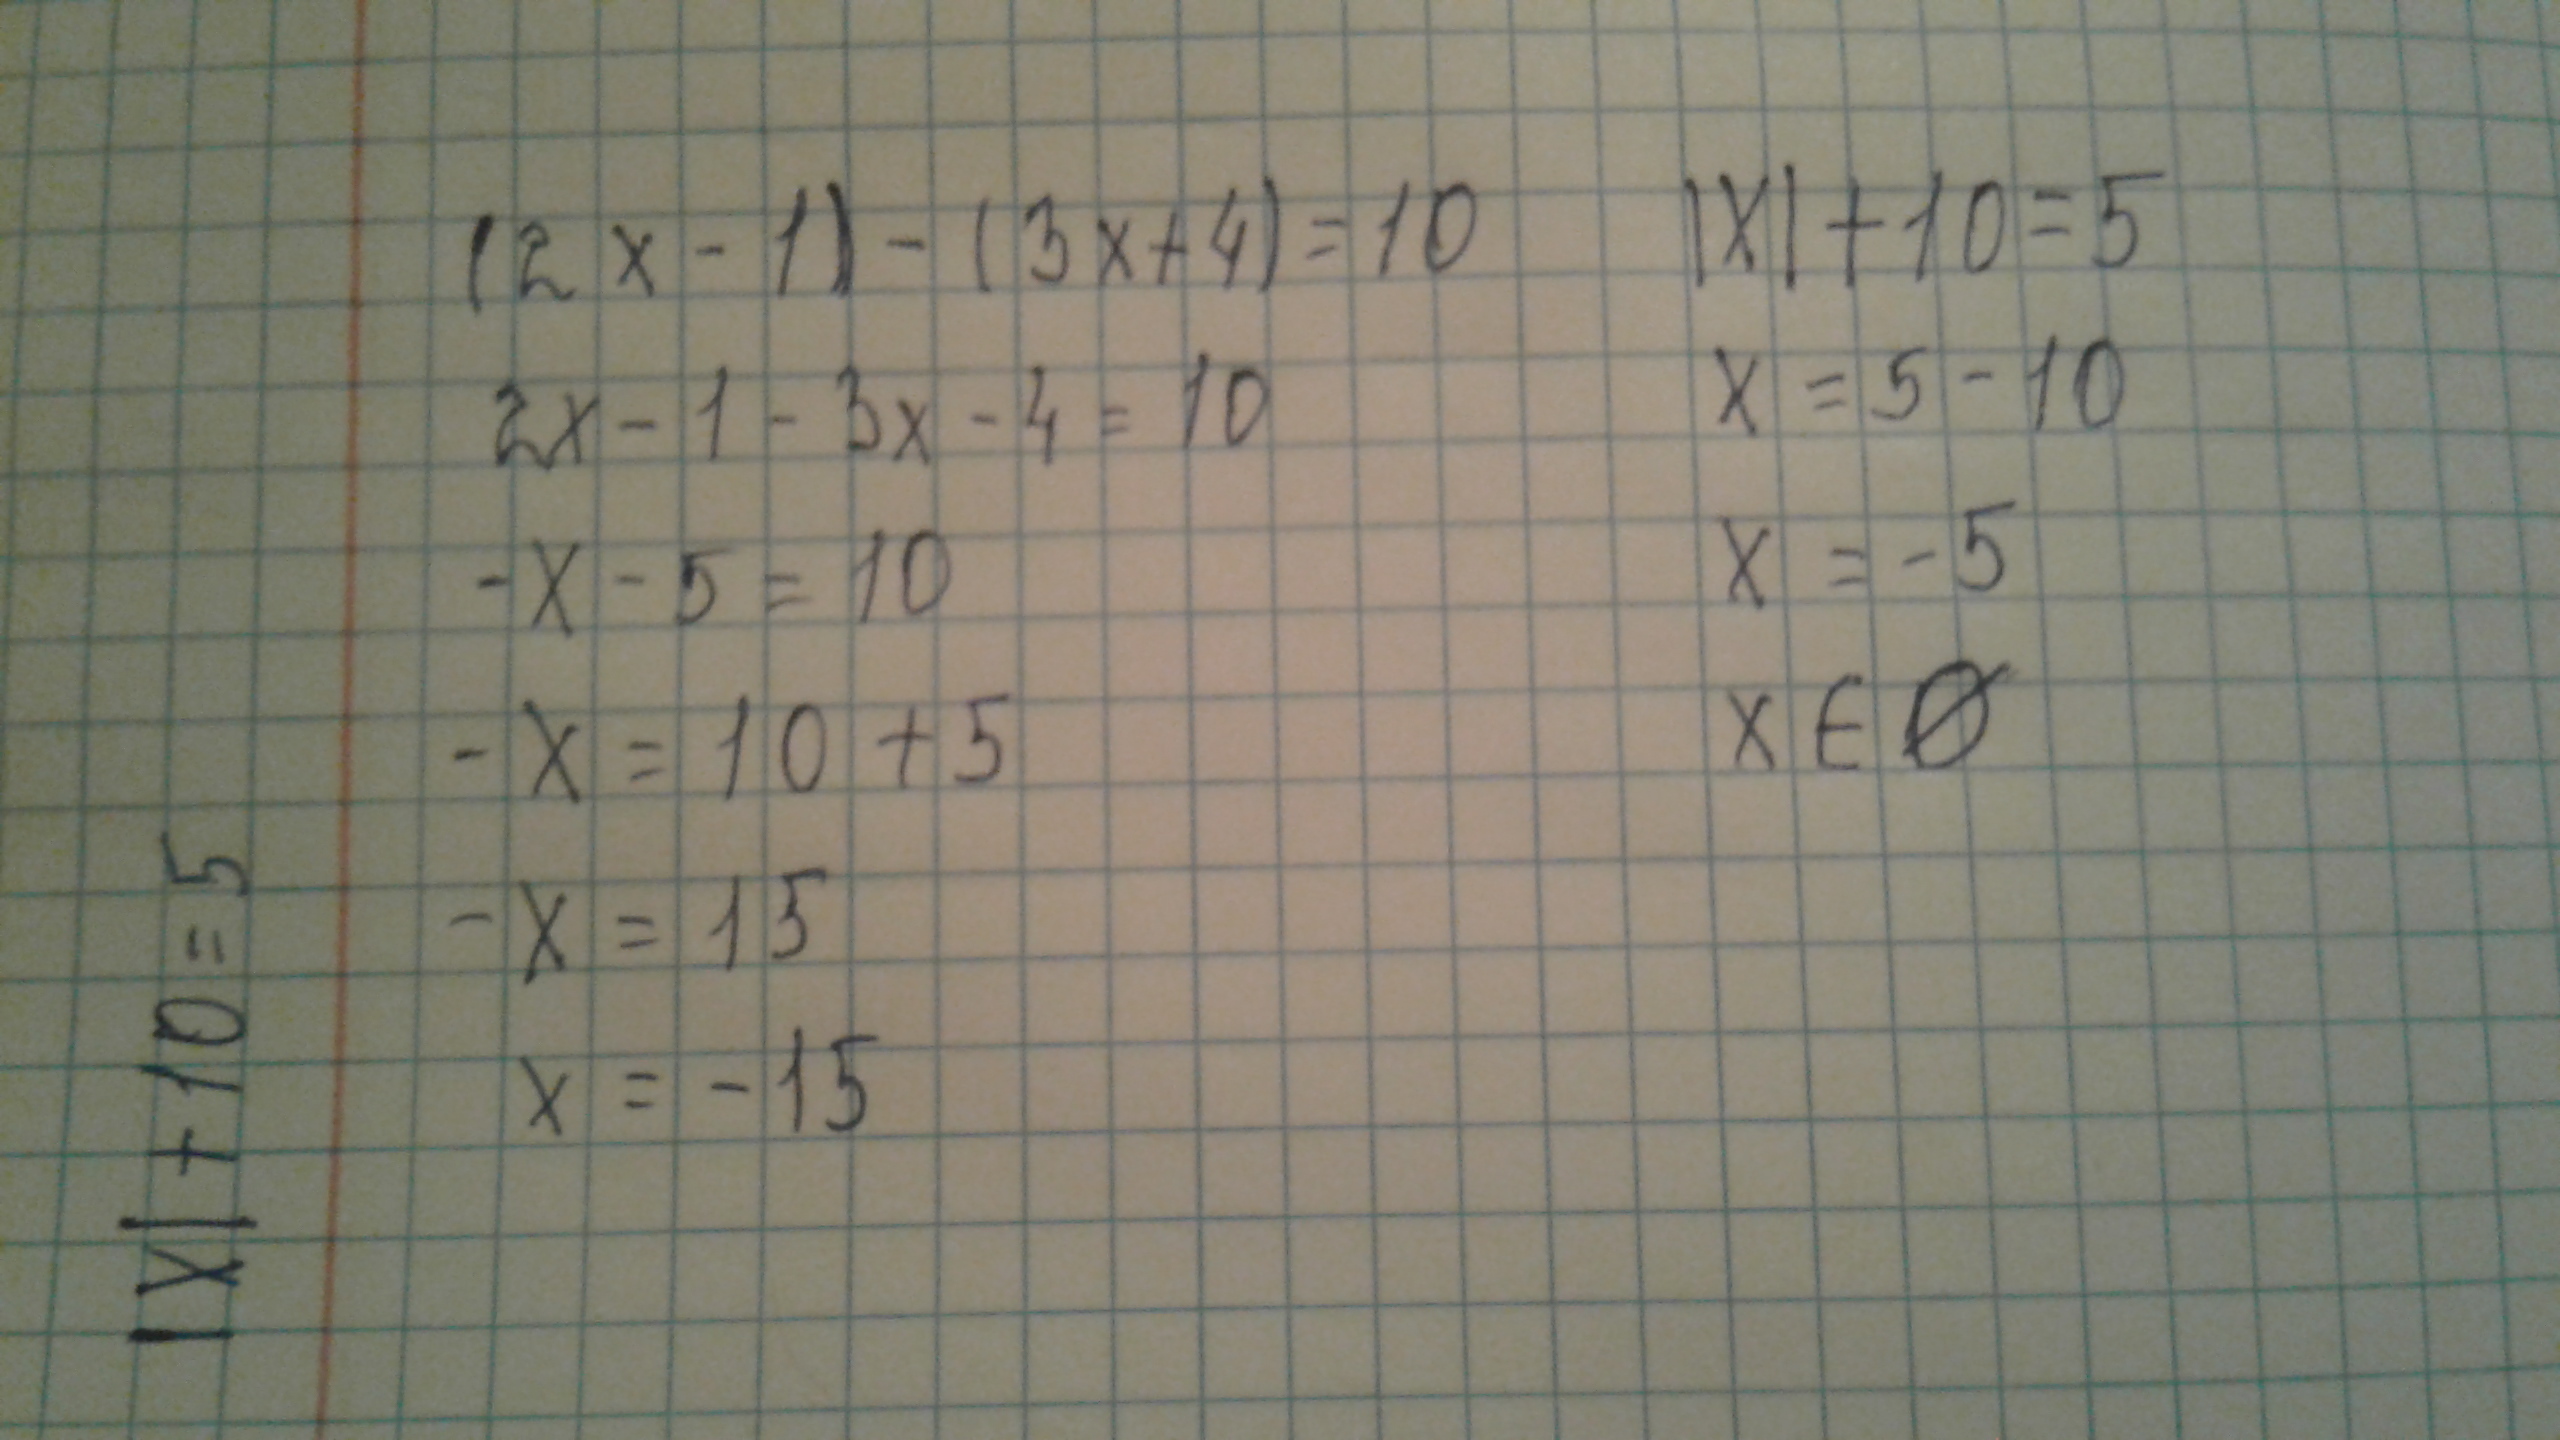 (2x-1)-(3x+4)=10
2x-1-3x-4=10
-x-5=10
-x=10+5
-x=15
x=-15
|x|+10=5
x=5-10
x=-5
x∈∅
|x|+10=5